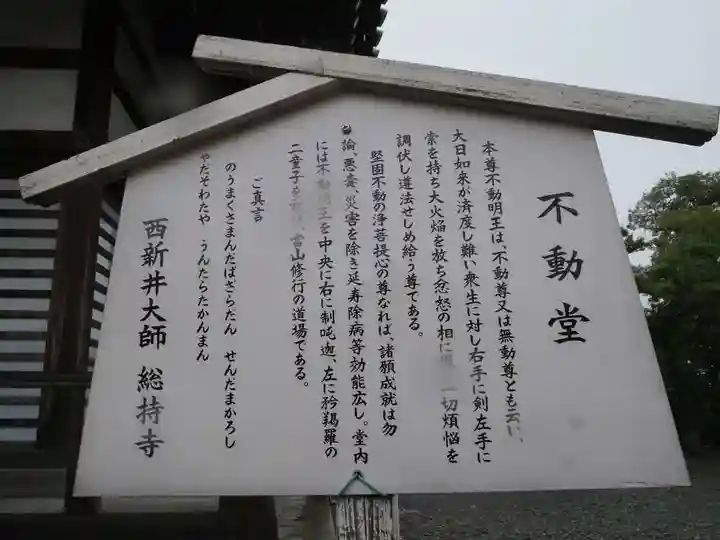 不動堂
本尊不動明王は、不動尊又は無動尊とも云い、
大日如来が済度し難い衆生に対し右手に剣左手に
索を持ち大火焔を放ち忿怒の相に 一切煩悩を
調伏し道法せしめ給う尊である。
堅固不動の浄菩提心の尊なれば、諸願成就は勿
論、悪毒、災害を除き延寿除病等効能広し。堂内
には不動明王を中央に右に制吒迦、左に矜羯羅の
二童子を 当山修行の道場である。
ご真言
のうまくさまんだばざらだん せんだまかろし
やだそわたや うんたらたかんまん
西新井大師 総持寺